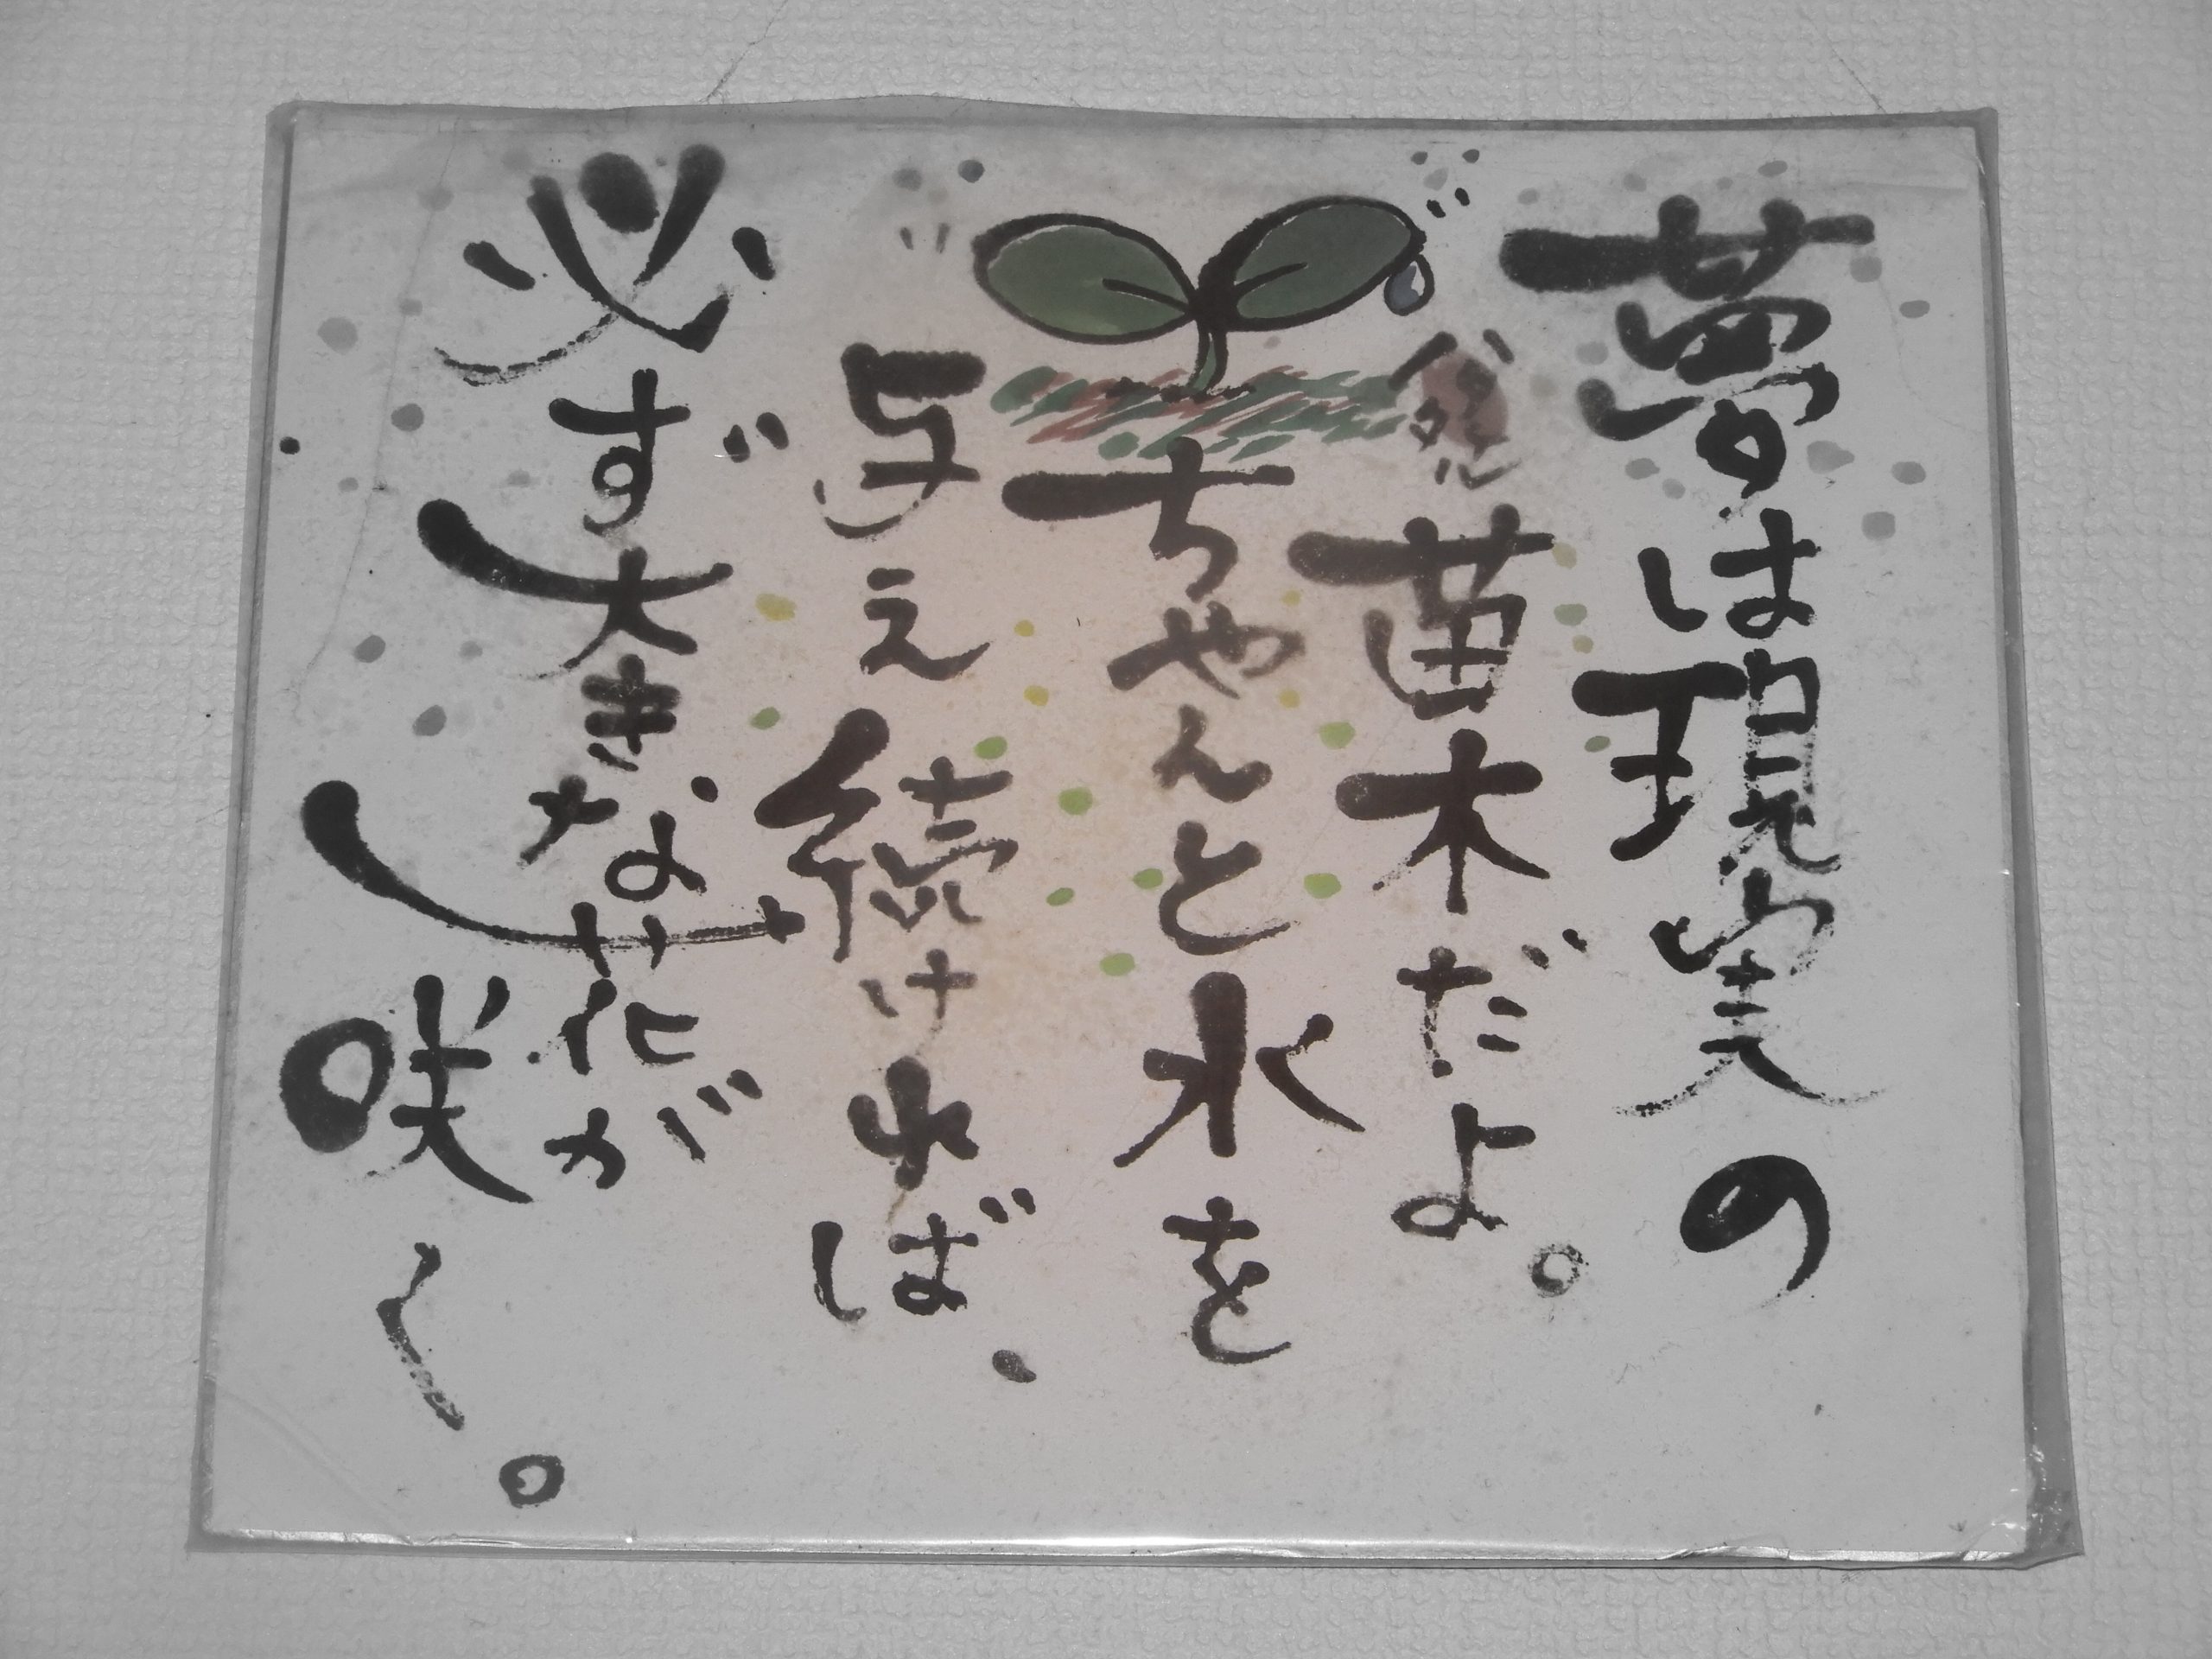 夢は現実の
苗木だよ。
ちゃんと水を
与え続ければ、
必ず大きな花が
咲く。